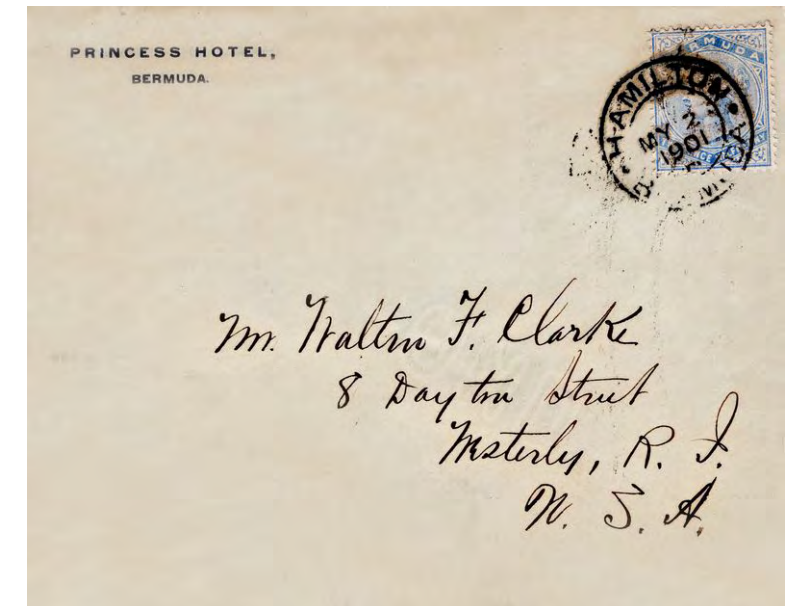 PRINCESS HOTEL,
BERMUDA.
BERMUDA
HAMILTON
MY 2
1901
Mr. Walton F. Clarke
8 Dayton Street
Westerly, R. I.
U. S. A.